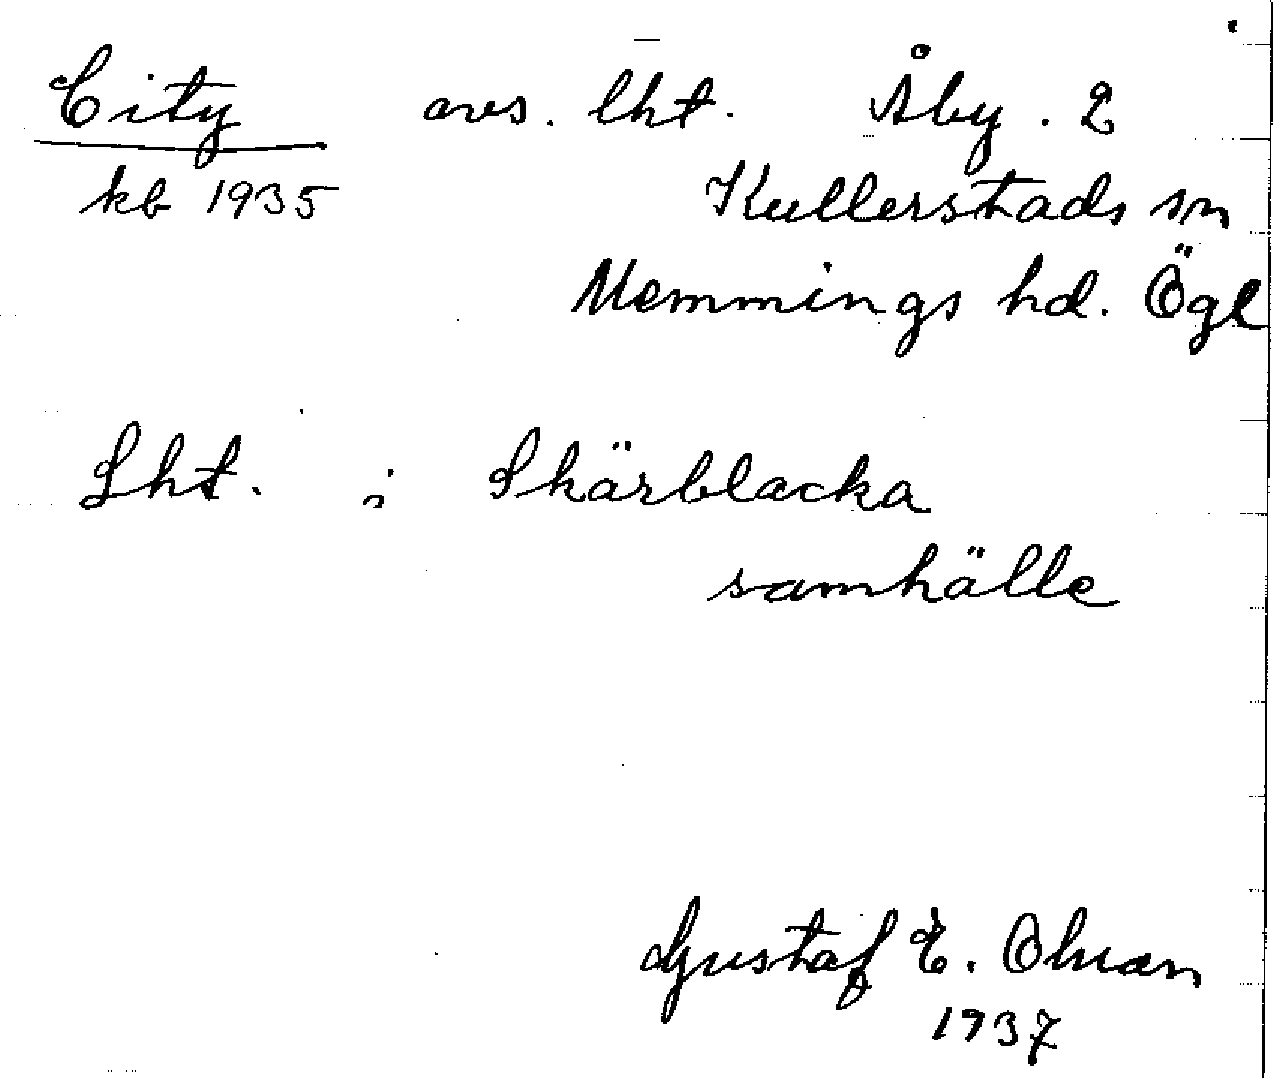 City avs. lht. Åby. 2
kb 1935 Kullerstads sn
Memmings hd. Ögl
Lht. i Skärblacka
samhälle
Gustaf E. Ohman
1937